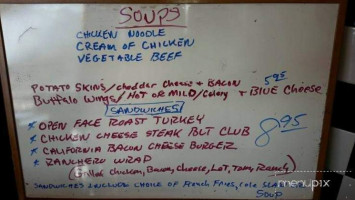 SOUPS
CHICKEN NOODLE
CREAM OF CHICKEN
VEGETABLE BEEF
POTATO SKINS/cheddar cheese + BACON 5.95
Buffalo wings/HOT OR MILD/Celery + BLUE Cheese
SANDWICHES
* OPEN FACE ROAST TURKEY
* CHICKEN CHEESE STEAK BLT CLUB 8.95
* CALIFORNIA BACON CHEESE BURGER
* RANCHERO WRAP
(Grilled Chicken, Bacon, Cheese, Let, Tom, Ranch)
SANDWICHES INCLUDE CHOICE OF French Fries, Cole Slaw
SOUP
menupix